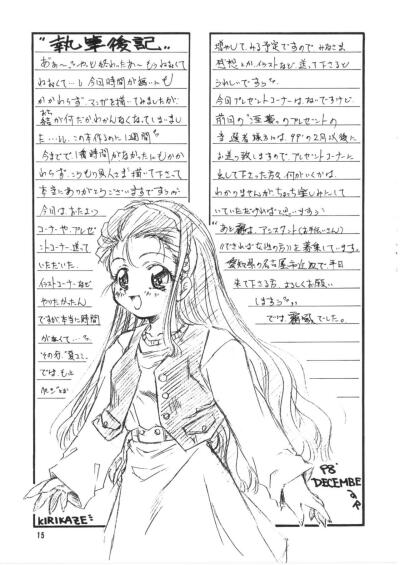 "執筆後記"
あぁ～
今回時間が無いにも
かかわらず、マンガを描いてみましたが、
結局が何だかわかんなくなってしまいまし
この本作るのに1週間
今までで1番時間がなかったにもかか
わらず、
本当にありがとうございますですっ
今回は、おたより
コーナーや、プレゼ
ントコーナー送って
いただいた、
イラストコーナーなど
やりたかったん
ですが本当に時間
がなくて…
その分"夏コミ"
では、もっと
増やしてみる予定ですので みなさま
感想とか、イラストなど、送って下さると
うれしいですっ
今回プレゼントコーナーはないですけど
前回の
プレゼントの
当選者様方には、99'の2月以後に
お送り致しますので プレゼントコーナーに
出して下さった方々、何がいくかは、
わかりませんがちょっち楽しみにして
いていただければと思います
"あと霧は、アシスタント
(できれば女性の方)を募集しています。
愛知県の名古屋
で平日
来て下さる方、よろしくお願い
しますっ
では、霧風でした。
98'
DECEMBE
R
KIRIKAZE
15